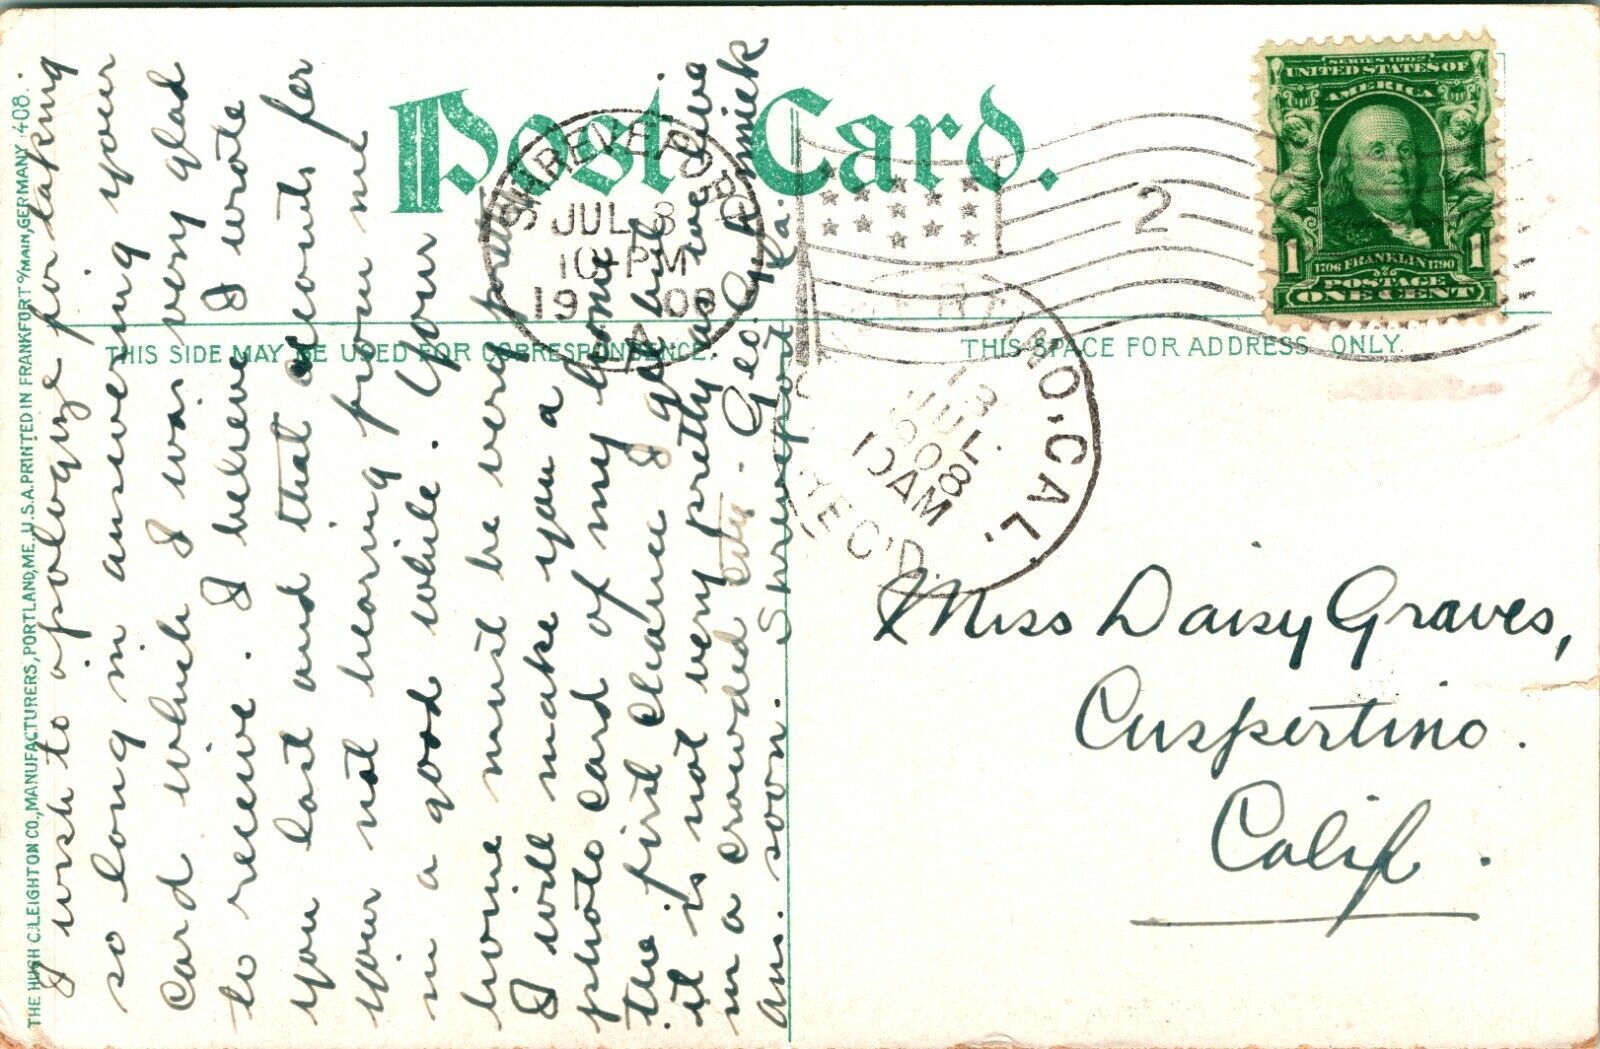 Post Card.
THIS SIDE MAY BE USED FOR CORRESPONDENCE.
THIS SPACE FOR ADDRESS ONLY.
THE HUGH C. LEIGHTON CO., MANUFACTURERS, PORTLAND, ME., U.S.A. PRINTED IN FRANKFORT o/MAIN, GERMANY 408.
SERIES 1902
UNITED STATES OF
AMERICA
1 1
1706 FRANKLIN 1790
POSTAGE
ONE CENT
SHREVEPORT
JUL 8
10-PM
19 08
LA
2
CAL.
13
JUL.
1908
10AM
REC'D.
I wish to apologize for taking
so long in answering your
card which I was very glad
to receive. I believe I wrote
you last and that accounts for
your not hearing from me
in a good while. Your
home must be very pretty
I will make you a
photo card of my home
the first chance I get but
it is not very pretty as we live
in a crowded city. Geo.
ans. soon. Shreveport La.
Miss Daisy Graves,
Cuspertino.
Calif.